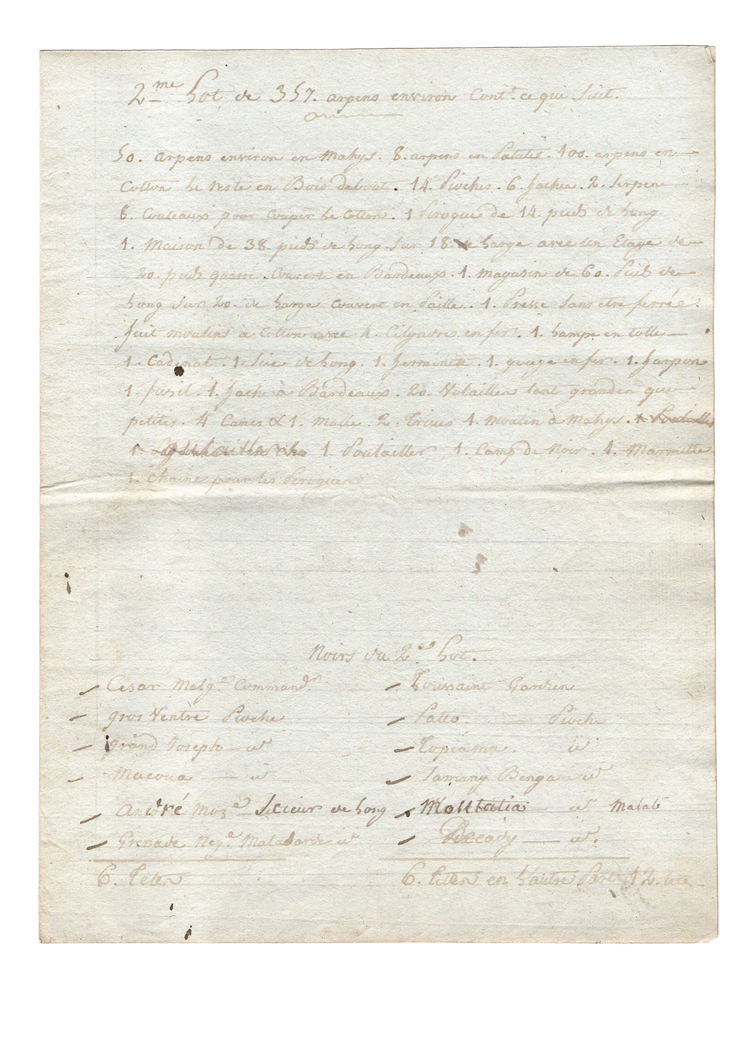 2.me Lot de 357. arpens environ Cont.t ce que suit.
50. arpens environ en Mahys. 8. arpens en Patates. 100. arpens en
Cotton le reste en Bois debout. 14. Pioches. 6. haches. 2. Serpes
6. Couteaux pour couper le Cotton. 1 Pirogue de 14. pieds de Long
1. Maison de 38. pieds de Long sur 18. de Large avec un Etage de
20. pieds quarré. Couverte en Bardeaux. 1. Magasin de 60. Pieds de
Long sur 20. de Large couvert en Paille. 1. Presse sans etre ferrée.
huit moulins à Cotton avec 4. Cilyndres en fer. 1. Lampe en tolle
1. Cadenat. 1. Sie de Long. 1. herminete. 1. gouge en fer. 1. harpon
1. fusil. 1. hache à Bardeaux. 20. Volailles tant grandes que
petites. 4 Canes & 1. Malle. 2. Truies 1. Moulin à Mahys. 1 Poulailler
1. 1. Poulailler 1. Camp de Noir. 1. Marmitte
1. Chaines pour les Pirogues
Noirs du 2.me Lot.
Cesar Malg.e Command.r
Toussaint Gardien
gros Ventre Pioche
Patto. Pioche
grand Joseph id
Topiama. id
Macoua id
Samany Bengali id
André Moz.e Scieur de Long
Moutatia id Malab
Grenade Neg.e Malabarde id
id.
6. Tetes
6. Tetes en L'autre Part 12. tetes